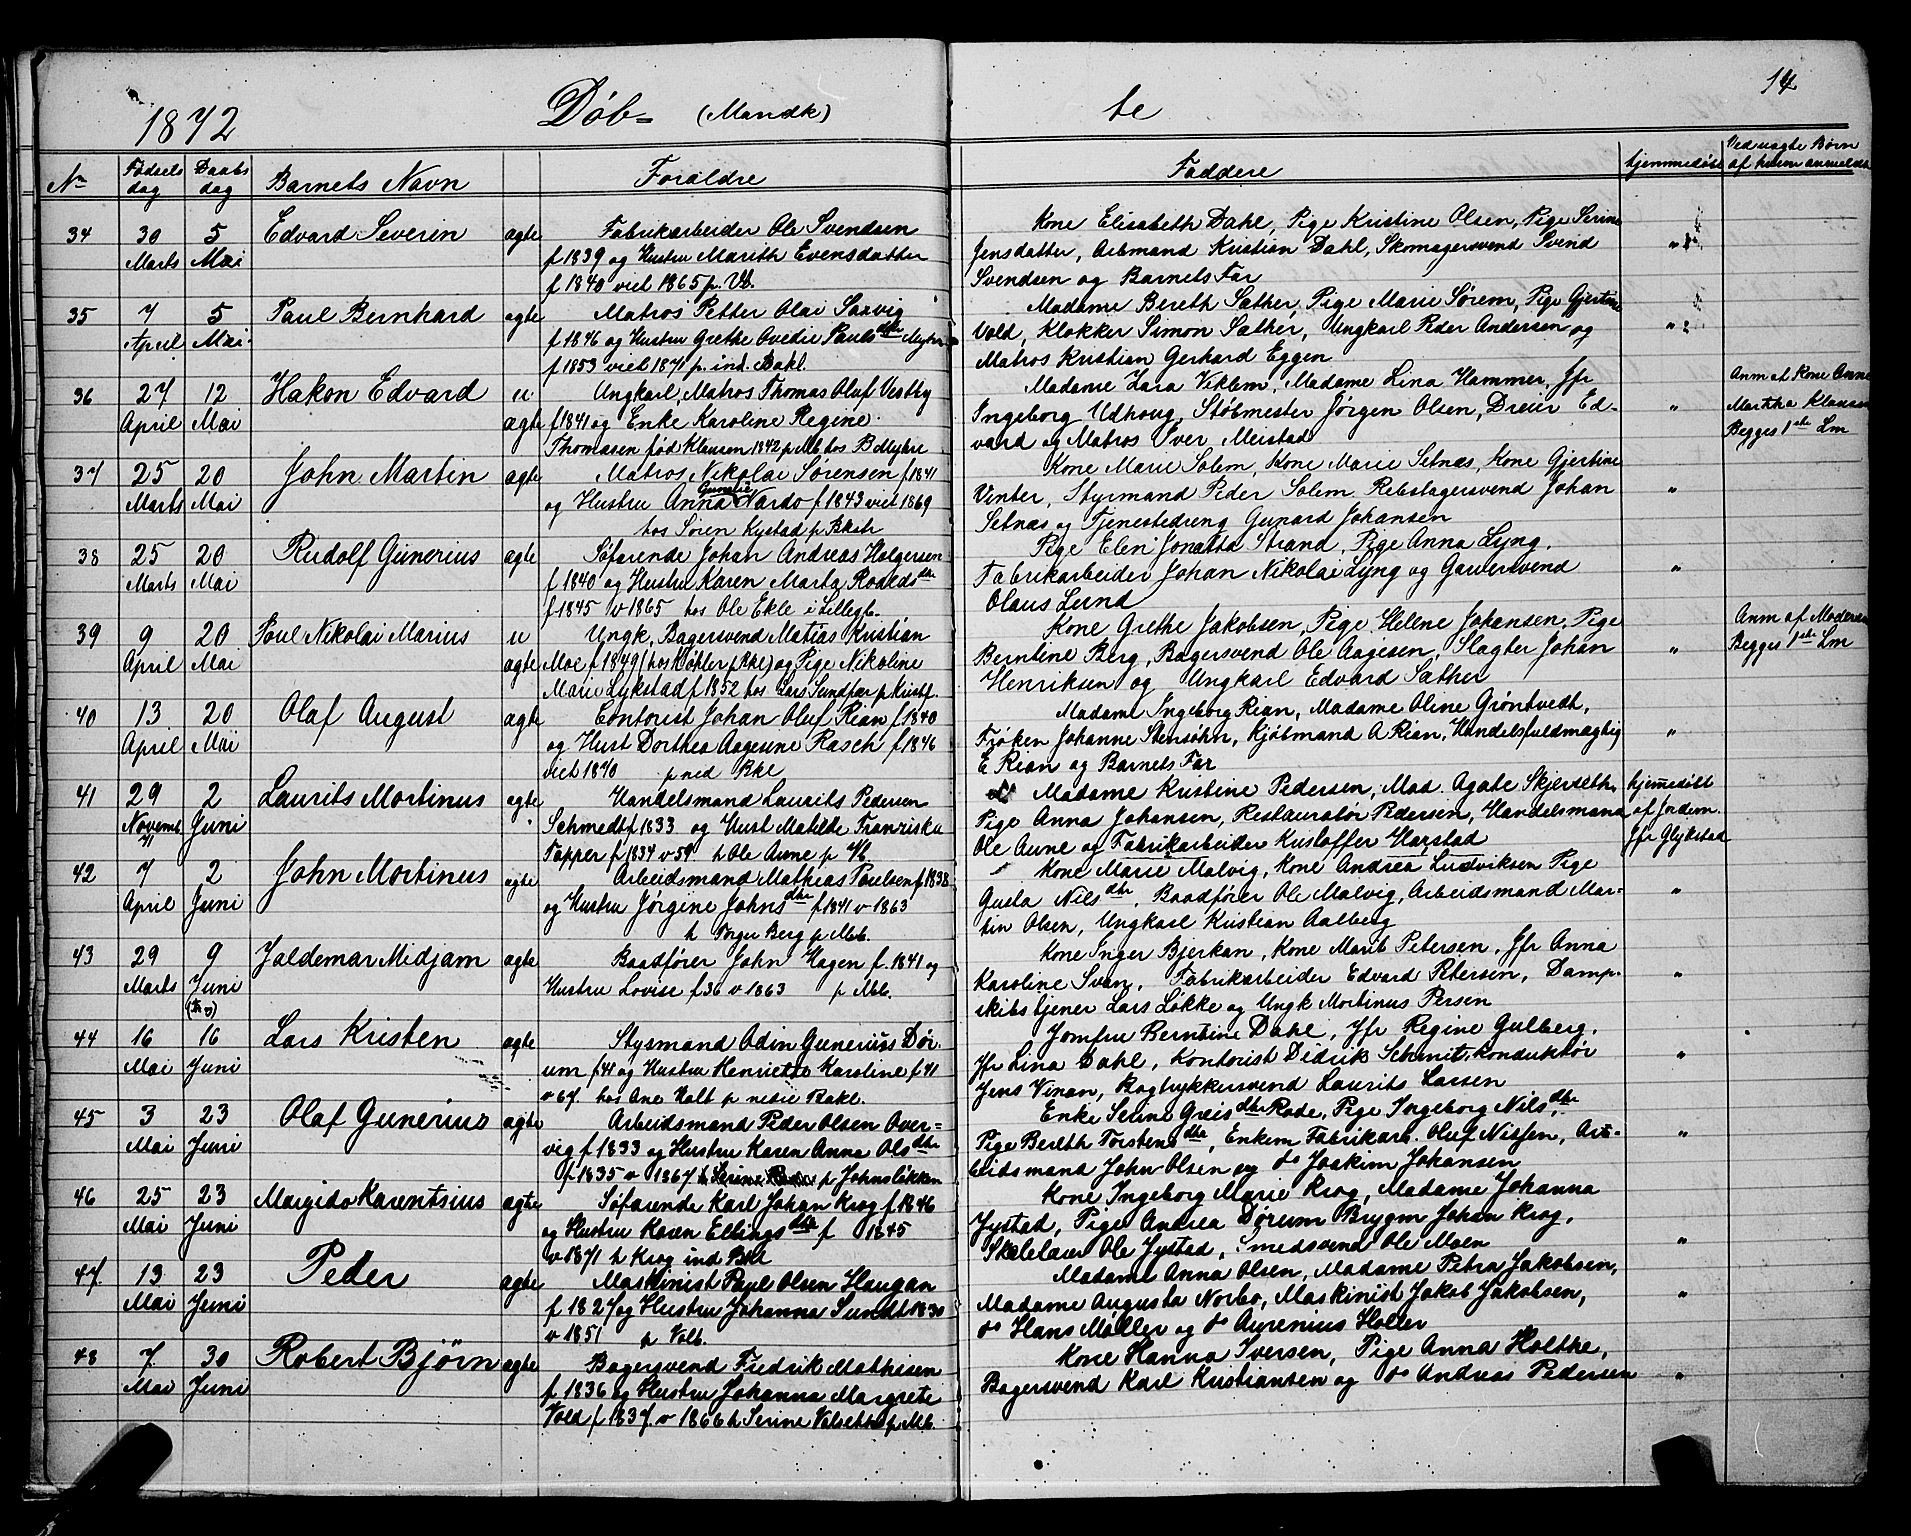 14
1872 Døb= (Mandk) te
No Fødsels dag Daabs dag Barnets Navn Forældre Faddere hjemmedøbt Ved uagte Børn af hvem anmeldt
34 30 Marts 5 Mai Edvard Severin agte Fabrikarbeider Ole Svendsen
f 1839 og Hustru Marith Evensdatter
f 1840 viet 1865 p. Vb.
Kone Elisabeth Dahl, Pige Kristine Olsen, Pige Serine
Jensdatter, Arbmand Kristian Dahl, Skomagersvend Svend
Svendsen og Barnets Far
35 7 April 5 Mai Paul Bernhard agte Matros Petter Olai Saxvig
f 1846 og Hustru Grethe Ovedie Pauls dtr
f 1853 viet 1871 p. ind. Bakl.
Madame Bereth Sæther, Pige Marie Sørem, Pige Gjertine
Vold, Klokker Simon Sæther, Ungkarl Peder Andersen og
Matros Kristian Gerhard Eggen
36 27 April 12 Mai Hakon Edvard u ægte Ungkarl, Matros Thomas Oluf Vestby
f 1841 og Enke Karoline Regine
Thomasen fød Klausen 1842 p Mb hos B Myhre
Madame Zara Viklem, Madame Lina Hammer, Jfr
Ingeborg Udhoug, Støbmester Jørgen Olsen, Dreier Ed-
vard og Matros Iver Meistad
"
Anm af Kone Anne
Martha Klausen
Begges 1ste Lm
37 25 Marts 20 Mai John Martin agte Matros Nikolai Sørensen f 1841
og Hustru Anna Gunelie Nardo f 1843 viet 1869
hos Søren Kystad p Bkstr
Kone Marie Solem, Kone Marie Setnæs, Kone Gjertine
Vinter, Styrmand Peder Solem, Rebslagersvend Johan
Setnæs og Tjenestedreng Gunard Johansen
"
38 25 Marts 20 Mai Rudolf Gunerius agte Søfarende Johan Andreas Holgersen
f 1840 og Hustru Karen Marta Roalds dtr
f 1845 v 1865 hos Ole Ekle i Lillegt.
Pige Elen Jonetta Strand, Pige Anna Lyng,
Fabrikarbeider Johan Nikolai Lyng og Garversvend
Olaus Lund
"
39 9 April 20 Mai Poul Nikolai Marius u agte Ungk, Bagersvend Matias Kristian
Moe f 1849 (hos Møhler p Bkl) og Pige Nikoline
Marie Lykstad f 1852 hos Lars Sundfær p Kristf.
Kone Grethe Jakobsen, Pige Helene Johansen, Pige
Berntine Berg, Bagersvend Ole Aagesen, Slagter Johan
Henriksen og Ungkarl Edvard Sæther
"
Anm af Moderen
Begges 1ste Lm
40 13 April 20 Mai Olaf August agte Contorist Johan Oluf Rian f 1840
og Hust Dorthea Aagerine Rasch f 1846
viet 1870 p ned Bkl
Madame Ingeborg Rian, Madame Oline Grøntvedt,
Frøken Johanne Stensøhn, Kjøbmand A Rian, Handelsfuldmægtig
E Rian og Barnets Far
"
41 29 Novemb 71 2 Juni Laurits Mortinus agte Handelsmand Laurits Pedersen
Schmedt f 1833 og Hust Matilde Franziska
Tapper f 1834 v 59 h Ole Aune p Vb
Madame Kristine Pedersen, Mad. Agate Skjerdeth,
Pige Anna Johansen, Restauratør Pedersen, Handelsmand
Ole Aune og Fabrikarbeider Kristoffer Harstad
hjemmedøbt
af Jordem.
Jfr Glykstad
42 7 April 2 Juni John Mortinus agte Arbeidsmand Mathias Poulsen f 1838
og Hustru Jørgine Johns dtr f 1841 v 1863
h Inger Berg p Mb.
Kone Marie Malvig, Kone Andrea Ludviksen Pige
Gusta Nils dtr, Baadfører Ole Malvig, Arbeidsmand Mar-
tin Olsen, Ungkarl Kristian Aalberg
"
43 29 Marts 9 Juni Valdemar Midjam agte Baadfører John Hagen f. 1841 og
Hustru Lovise f 36 v 1863 p Mb.
Kone Inger Bjerkan, Kone Marit Petersen, Jfr Anna
Karoline Svan, Fabrikarbeider Edvard Petersen, Damp-
skibstjener Lars Løkke og Ungk Mortinus Persen
"
44 16 Mai 16 Juni Lars Kristen agte Styrmand Odin Gunerius Dør-
um f 41 og Hustru Henriette Karoline f 41
v 67. hos Ane Holt p nedre Bakl.
Jomfru Berntine Dahl, Jfr Regine Gulberg,
Jfr Lina Dahl, Kontorist Didrik Schmit, Konduktør
Jens Vinan, Bogtrykkersvend Laurits Larsen
"
45 3 Mai 23 Juni Olaf Gunerius agte Arbeidsmand Peder Olsen Over=
vig f 1833 og Hustru Karen Anna Ols dtr
f 1835 v 1867 p Johnsløkken
Enke Serine Greis dtr Rode, Pige Ingeborg Nils dtr,
Pige Bereth Torstens dtr, Enkem Fabrikarb. Oluf Nilsen, Ar-
beidsmand John Olsen og do Joakim Johansen
"
46 25 Mai 23 Juni Margido Karentsius agte Søfarende Karl Johan Krog f. 1846
og Hustru Karen Ellings dtr f 1845
v 1871 h Krog ind Bkl
Kone Ingeborg Marie Krog, Madame Johanna
Jystad, Pige Andrea Dørum Brygm Johan Krog,
Skolelærer Ole Jystad, Smedsvend Ole Moen
"
47 13 Mai 23 Juni Peder agte Maskinist Paul Olsen Haugan
f 1827 og Hustru Johanna Sundt 1830
v 1851 p Volb.
Madame Anna Olsen, Madame Petra Jakobsen,
Madame Augusta Norbo, Maskinist Jakob Jakobsen,
do Hans Møller og do Aurenius Holter
"
48 7 Mai 30 Juni Robert Bjørn agte Bagersvend Fredrik Mathisen
f 1836 og Hustru Johanna Margrete
Vold f 1837 v 1866 h Serine Valseth p Mb.
Kone Hanna Iversen, Pige Anna Holthe,
Bagersvend Karl Kristiansen og do Andreas Pedersen
"